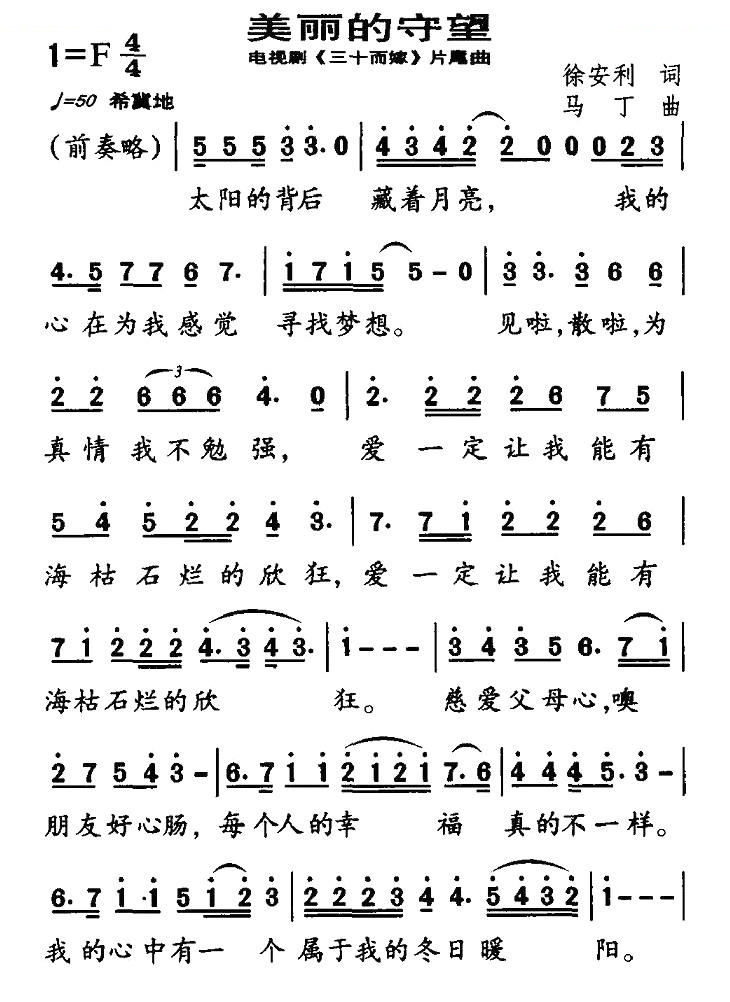 美丽的守望
电视剧《三十而嫁》片尾曲
1=F 4/4
♩=50 希冀地
徐安利 词
马丁 曲
(前奏略) | 5 5 5 3 3. 0 | 4 3 4 2 2 0 0 0 2 3 |
太阳的背后 藏着月亮， 我的
4. 5 7 7 6 7. | 1 7 1 5 5 - 0 | 3 3. 3 6 6 |
心在为我感觉 寻找梦想。 见啦，散啦，为
2 2 6 6 6 4. 0 | 2. 2 2 2 6 7 5 |
真情我不勉强， 爱一定让我能有
5 4 5 2 2 4 3. | 7. 7 1 2 2 2 6 |
海枯石烂的欣狂，爱一定让我能有
7 1 2 2 2 4. 3 4 3. | 1 - - - | 3 4 3 5 6. 7 1 |
海枯石烂的欣 狂。 慈爱父母心，噢
2 7 5 4 3 - | 6. 7 1 1 2 1 2 1 7. 6 | 4 4 4 5. 3 - |
朋友好心肠，每个人的幸 福 真的不一样。
6. 7 1 · 1 5 1 2 3 | 2 2 2 3 4 4. 5 4 3 2 | 1 - - - |
我的心中有一 个 属于我的冬日暖 阳。